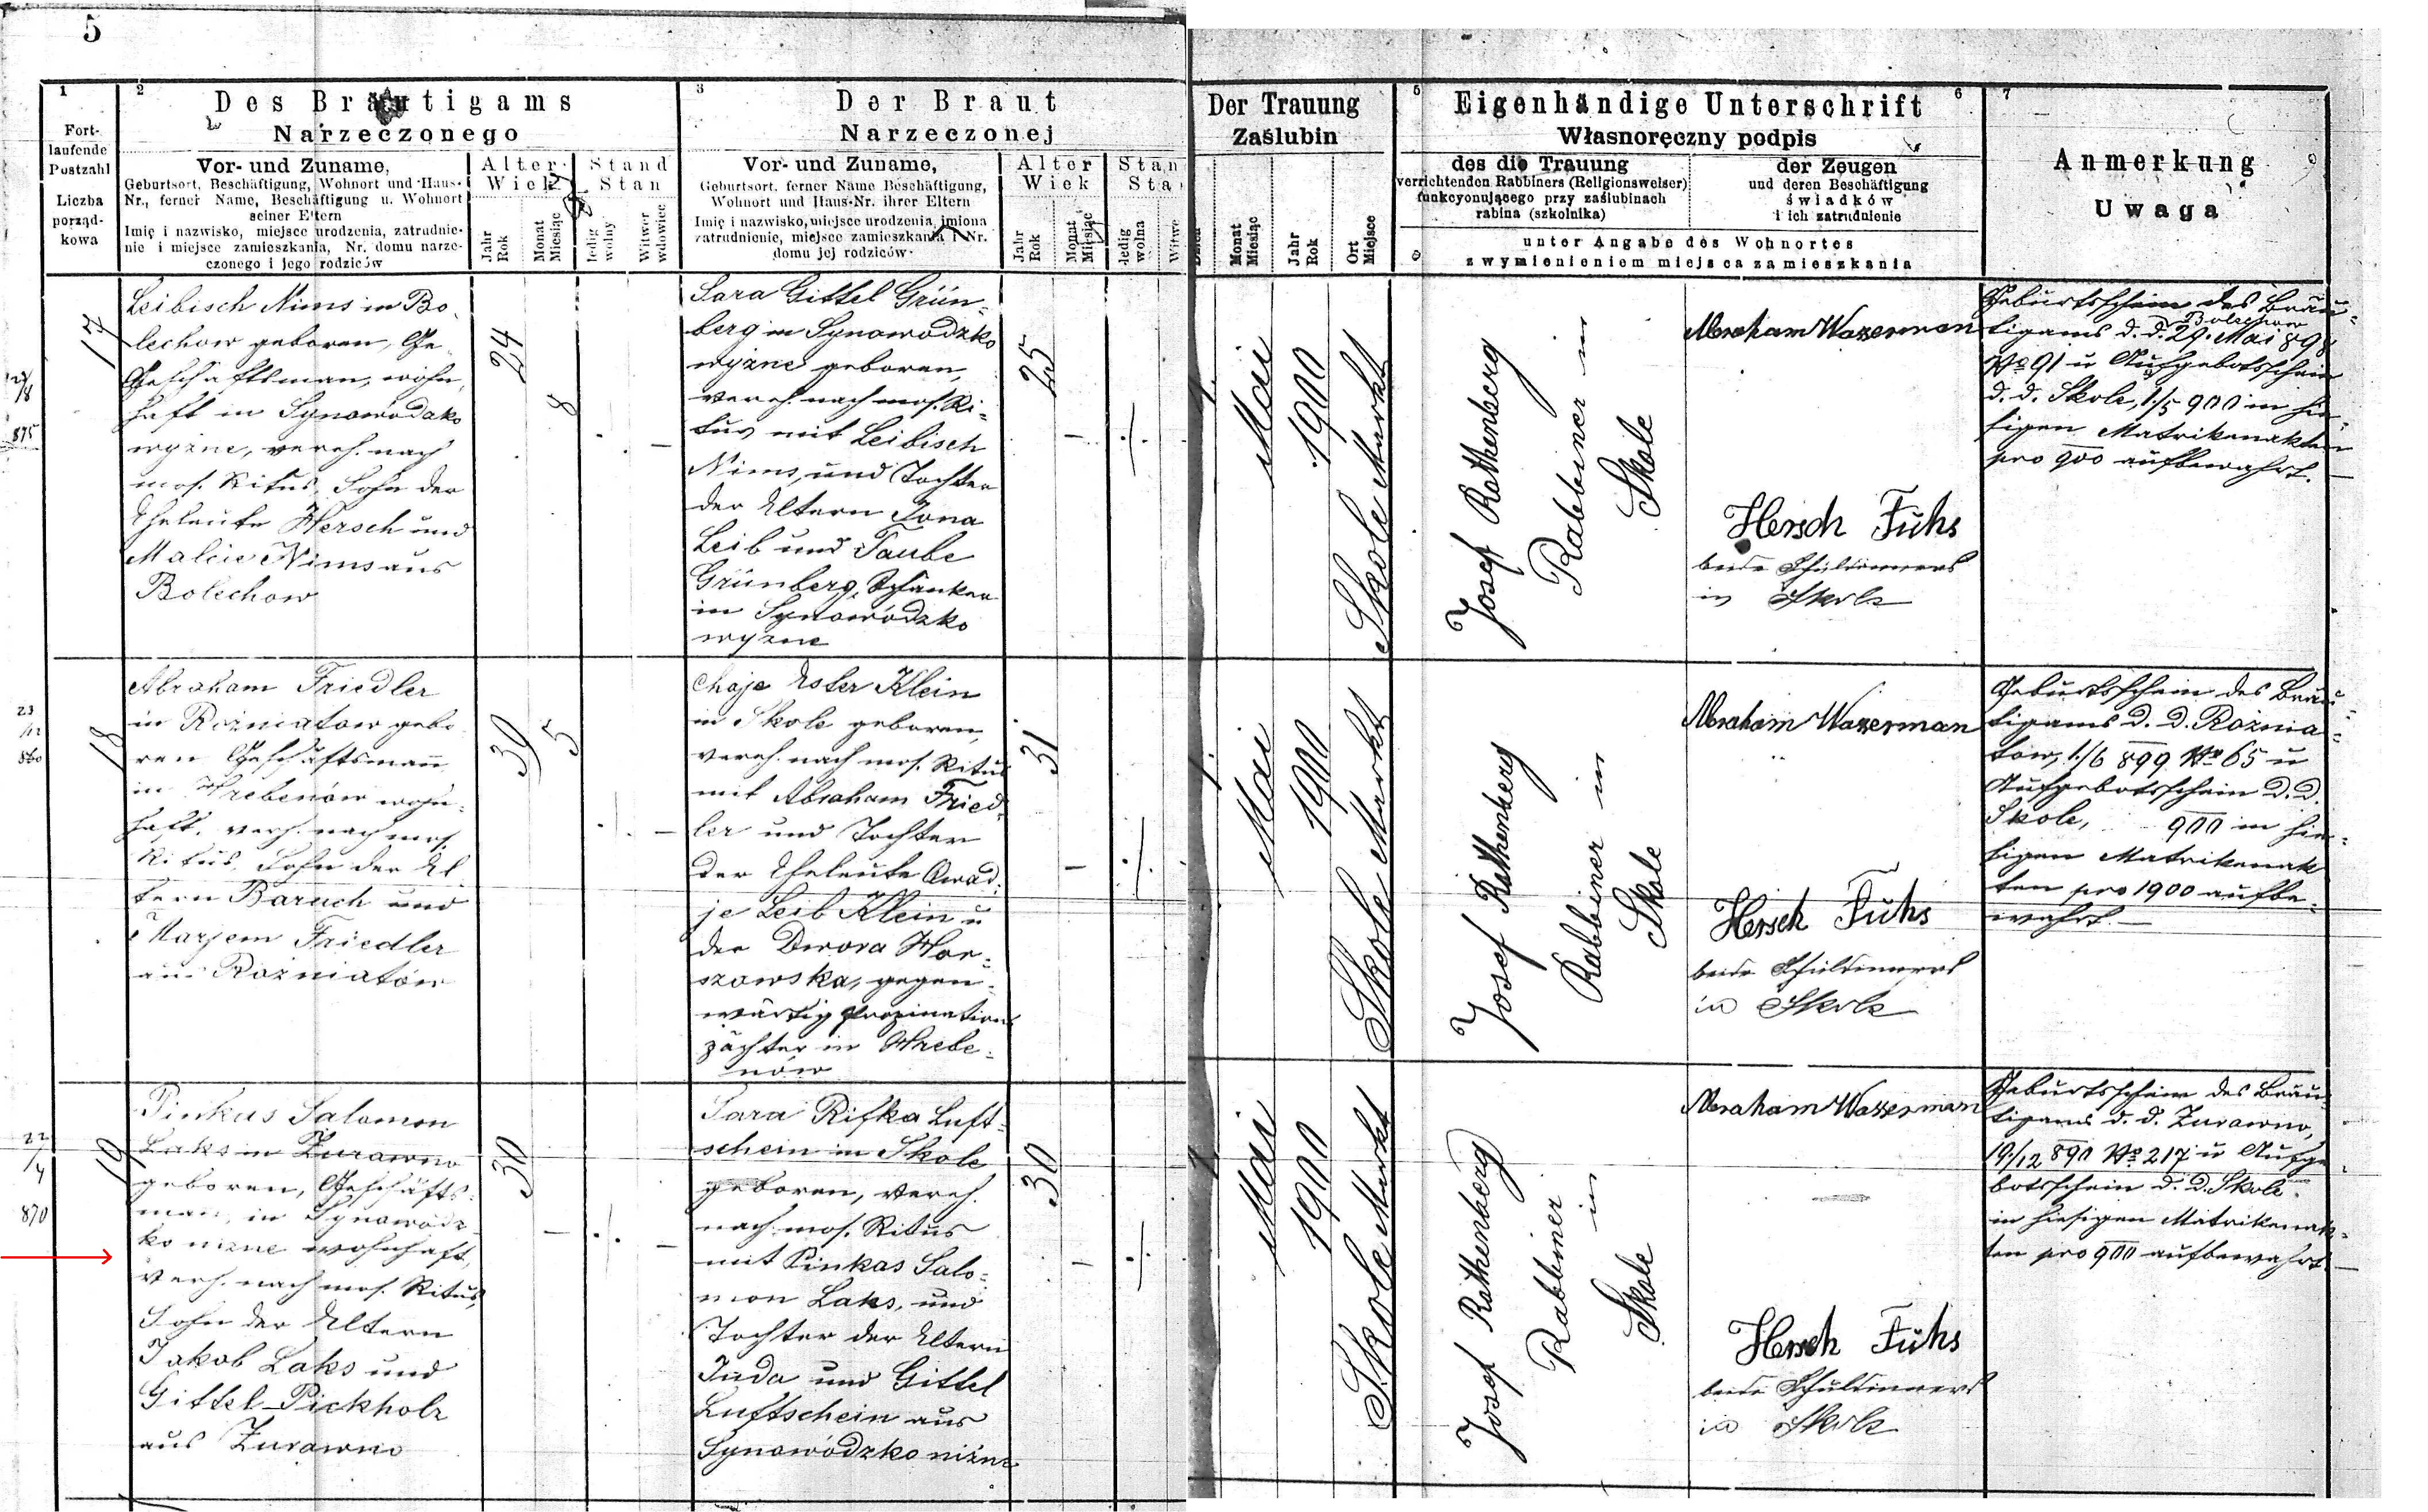 5
1
2
Des Bräutigams
Narzeczonego
3
Der Braut
Narzeczonej
Der Trauung
Zaślubin
5
Eigenhändige Unterschrift
6
Własnoręczny podpis
7
Anmerkung
Uwaga
Fort-
laufende
Postzahl
Liczba
porząd-
kowa
Vor- und Zuname,
Geburtsort, Beschäftigung, Wohnort und Haus-
Nr., ferner Name, Beschäftigung u. Wohnort
seiner Eltern
Imię i nazwisko, miejsce urodzenia, zatrudnie-
nie i miejsce zamieszkania, Nr. domu narze-
czonego i jego rodziców
Alter
Wiek
Jahr
Rok
Monat
Miesiąc
Stand
Stan
ledig
wolny
Witwer
wdowiec
Vor- und Zuname,
Geburtsort, ferner Name Beschäftigung,
Wohnort und Haus-Nr. ihrer Eltern
Imię i nazwisko, miejsce urodzenia, imiona
zatrudnienie, miejsce zamieszkania i Nr.
domu jej rodziców
Alter
Wiek
Jahr
Rok
Monat
Miesiąc
Stan
Sta
ledig
wolna
Witwe
Monat
Miesiąc
Jahr
Rok
Ort
Miejsce
des die Trauung
verrichtenden Rabbiners (Religionsweiser)
funkcyonującego przy zaślubinach
rabina (szkolnika)
der Zeugen
und deren Beschäftigung
świadków
i ich zatrudnienie
unter Angabe des Wohnortes
z wymienieniem miejsca zamieszkania
27/8
875
17
Leibisch Nims in Bo-
lechow geboren, Ge-
schäftsman, wohn-
haft in Synowódzko
wyżne, vereh. nach
mos. Ritus, Sohn der
Eheleute Hersch und
Malcie Nims aus
Bolechow
24
8
Sara Gittel Grün-
berg in Synowódzko
wyżne geboren,
vereh. nach mos. Ri-
tus mit Leibisch
Nims, und Tochter
der Eltern Jona
Leib und Taube
Grünberg, Schänker
in Synowódzko
wyżne
25
1.
Mai
1900
Skole Markt
Josef Rothenberg
Rabbiner in
Skole
Abraham Wazerman
Hersch Fuhs
beide Schuldieners
in Skole
Geburtsschein des Bräu-
tigams d. d. Bolechow 29. Mai 898
No 91 u Aufgebotsschein
d. d. Skole, 1/5 900 in hie-
sigen Matrikenakten
pro 900 aufbewahrt.
23
/12
860
18
Abraham Friedler
in Rożniatow gebo-
ren Geschäftsmann
in Hrebenów wohn-
haft, vereh. nach mos.
Ritus, Sohn der El-
tern Baruch und
Marjem Friedler
aus Rożniatów
39
5
Chaje Ester Klein
in Skole geboren,
vereh. nach mos. Ritus
mit Abraham Fried-
ler und Tochter
der Eheleute Owad-
je Leib Klein u
der Dwora Hor-
szowska, gegen-
wärtig Propinations
pächter in Hrebe-
nów
31
1.
Mai
1900
Skole Markt
Josef Rothenberg
Rabbiner in
Skole
Abraham Wazerman
Hersch Fuhs
beide Schuldieners
in Skole
Geburtsschein des Bräu-
tigams d. d. Rożnia-
tow, 1/6 899 No 65 u
Aufgebotsschein d. d.
Skole, 900 in hie-
sigen Matrikenak-
ten pro 1900 aufbe-
wahrt.
22
/4
870
19
Pinkus Salomon
Laks in Zurawno
geboren, Geschäfts-
man, in Synowódz-
ko niżne wohnhaft,
vereh. nach mos. Ritus,
Sohn der Eltern
Jakob Laks und
Gittel Pickholz
aus Zurawno
30
Sara Rifka Luft-
schein in Skole
geboren, vereh.
nach mos. Ritus
mit Pinkas Salo-
mon Laks, und
Tochter der Eltern
Juda und Gittel
Luftschein aus
Synowódzko niżne
30
1.
Mai
1900
Skole Markt
Josef Rothenberg
Rabbiner in
Skole
Abraham Wasserman
Hersch Fuhs
beide Schuldieners
in Skole
Geburtsschein des Bräu-
tigams d. d. Zurawno,
19/12 890 No 217 u Aufge-
botsschein d. d. Skole
in hiesigen Matrikenak-
ten pro 900 aufbewahrt.